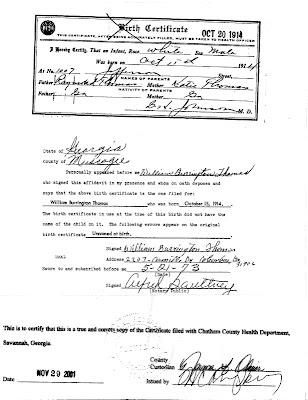 Birth Certificate
OCT 20 1914
THIS CERTIFICATE, AFTER BEING CORRECTLY FILLED, MUST BE TAKEN TO THE HEALTH OFFICE
I Hereby Certify, That an Infant, Race White Sex Male
Was Born on Oct 15th 1914
At No. 1007 Jefferson Street.
NAMES OF PARENTS
Father Raymond Thomas Mother Katie Thomas
NATIVITY OF PARENTS
Father Ga Mother Ga
Johnson M. D.
State of Georgia
county of Muscogee
Personally appeared before me William Burrington Thomas
who signed this affidavit in my presence and whom on oath deposes and
says that the above birth certificate is the one filed for:
William Burrington Thomas who was born October 15, 1914.
The birth certificate in use at the time of this birth did not have the
name of the child on it. The following errors appear on the original
birth certificate Unnamed at birth.
Signed William Burrington Thomas
SEAL Address 2207 Camille Dr Columbus Ga 31906
Sworn to and subscribed before me 5-21-73
(Date)
Signed Alfred Gaultney
(Notary Public)
This is to certify that this is a true and correct copy of the Certificate filed with Chatham County Health Department,
Savannah, Georgia.
County
Custodian
Date NOV 29 2001 Issued by